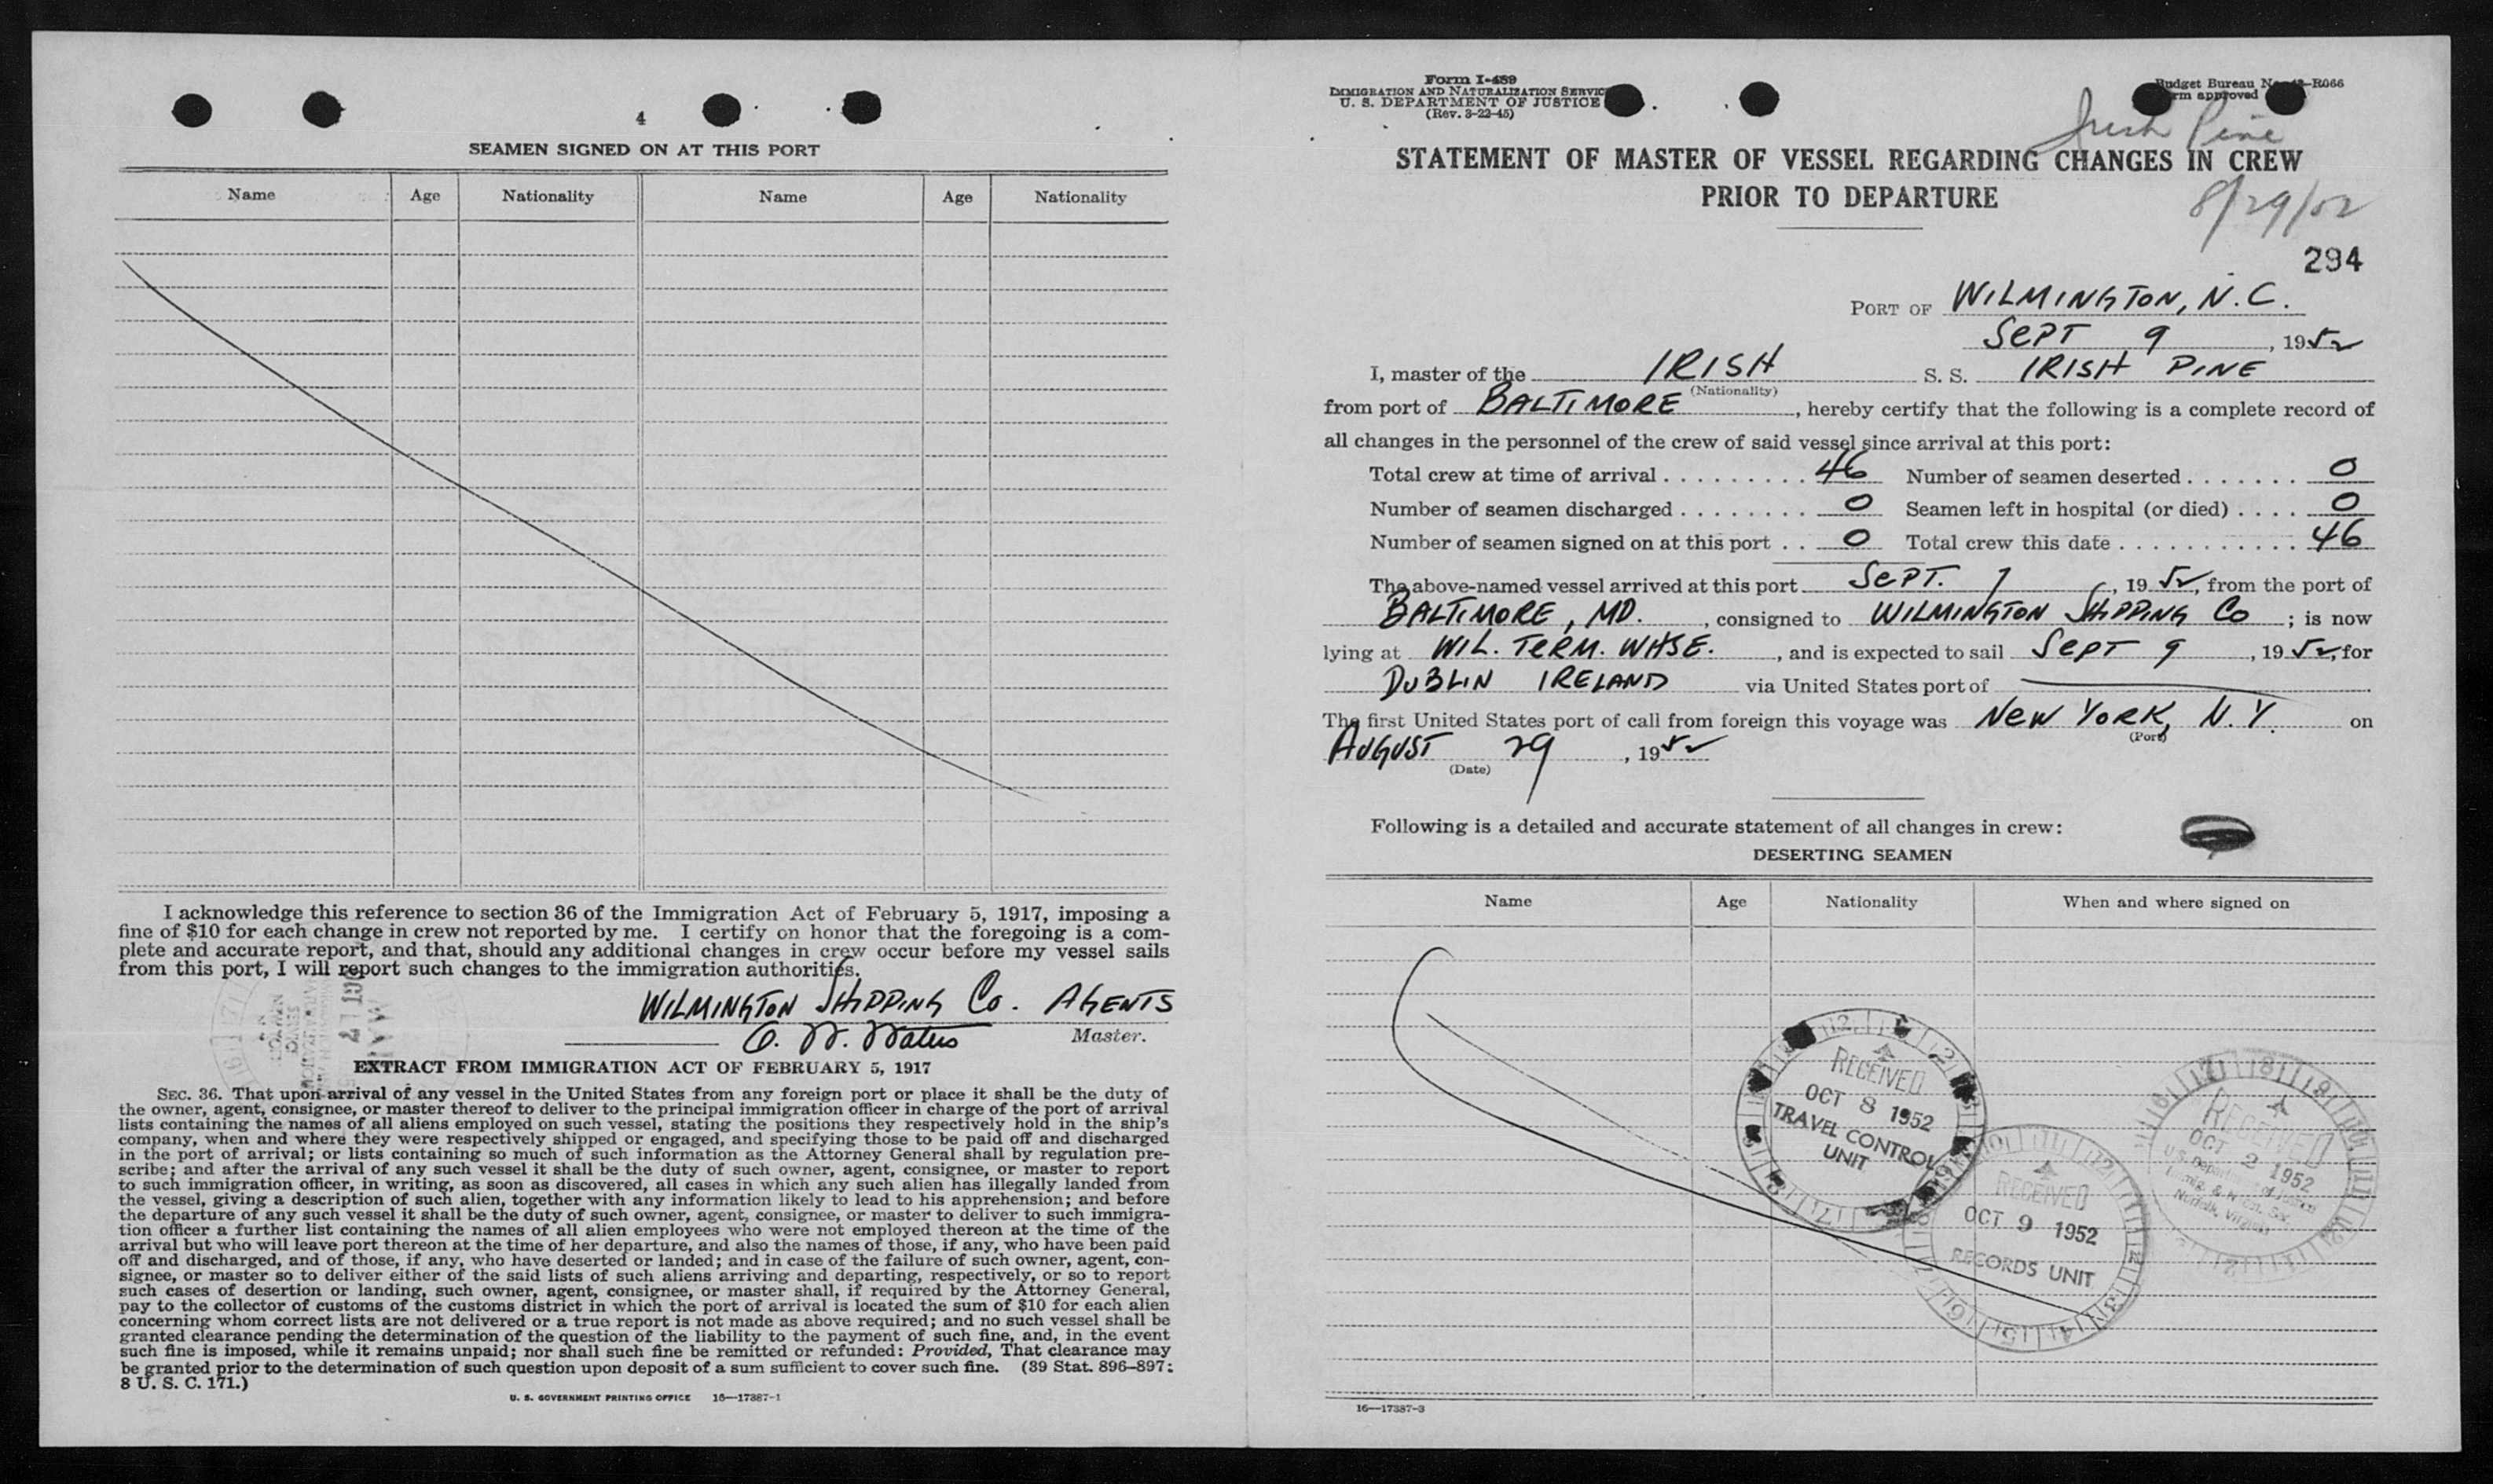 4
SEAMEN SIGNED ON AT THIS PORT
Name Age Nationality Name Age Nationality
I acknowledge this reference to section 36 of the Immigration Act of February 5, 1917, imposing a
fine of $10 for each change in crew not reported by me. I certify on honor that the foregoing is a com-
plete and accurate report, and that, should any additional changes in crew occur before my vessel sails
from this port, I will report such changes to the immigration authorities.
WILMINGTON SHIPPING Co. AGENTS
Master.
EXTRACT FROM IMMIGRATION ACT OF FEBRUARY 5, 1917
SEC. 36. That upon arrival of any vessel in the United States from any foreign port or place it shall be the duty of
the owner, agent, consignee, or master thereof to deliver to the principal immigration officer in charge of the port of arrival
lists containing the names of all aliens employed on such vessel, stating the positions they respectively hold in the ship's
company, when and where they were respectively shipped or engaged, and specifying those to be paid off and discharged
in the port of arrival; or lists containing so much of such information as the Attorney General shall by regulation pre-
scribe; and after the arrival of any such vessel it shall be the duty of such owner, agent, consignee, or master to report
to such immigration officer, in writing, as soon as discovered, all cases in which any such alien has illegally landed from
the vessel, giving a description of such alien, together with any information likely to lead to his apprehension; and before
the departure of any such vessel it shall be the duty of such owner, agent, consignee, or master to deliver to such immigra-
tion officer a further list containing the names of all alien employees who were not employed thereon at the time of the
arrival but who will leave port thereon at the time of her departure, and also the names of those, if any, who have been paid
off and discharged, and of those, if any, who have deserted or landed; and in case of the failure of such owner, agent, con-
signee, or master so to deliver either of the said lists of such aliens arriving and departing, respectively, or so to report
such cases of desertion or landing, such owner, agent, consignee, or master shall, if required by the Attorney General,
pay to the collector of customs of the customs district in which the port of arrival is located the sum of $10 for each alien
concerning whom correct lists are not delivered or a true report is not made as above required; and no such vessel shall be
granted clearance pending the determination of the question of the liability to the payment of such fine, and, in the event
such fine is imposed, while it remains unpaid; nor shall such fine be remitted or refunded: Provided, That clearance may
be granted prior to the determination of such question upon deposit of a sum sufficient to cover such fine. (39 Stat. 896–897;
8 U. S. C. 171.)
U. S. GOVERNMENT PRINTING OFFICE 16—17387-1
Form I-489
IMMIGRATION AND NATURALIZATION SERVICE
U. S. DEPARTMENT OF JUSTICE
(Rev. 3-22-45)
Budget Bureau R066
approved
Irish Pine
STATEMENT OF MASTER OF VESSEL REGARDING CHANGES IN CREW
PRIOR TO DEPARTURE
8/29/52
294
PORT OF WILMINGTON, N.C.
SEPT 9, 1952
I, master of the IRISH S. S. IRISH PINE
(Nationality)
from port of BALTIMORE, hereby certify that the following is a complete record of
all changes in the personnel of the crew of said vessel since arrival at this port:
Total crew at time of arrival 46 Number of seamen deserted 0
Number of seamen discharged 0 Seamen left in hospital (or died) 0
Number of seamen signed on at this port 0 Total crew this date 46
The above-named vessel arrived at this port SEPT. 7, 1952, from the port of
BALTIMORE, MD., consigned to WILMINGTON SHIPPING Co; is now
lying at WIL. TERM. WHSE., and is expected to sail SEPT 9, 1952, for
DUBLIN IRELAND via United States port of
The first United States port of call from foreign this voyage was NEW YORK, N. Y. on
(Port)
AUGUST 29, 1952
(Date)
Following is a detailed and accurate statement of all changes in crew:
DESERTING SEAMEN
Name Age Nationality When and where signed on
RECEIVED
OCT 8 1952
TRAVEL CONTROL
UNIT
RECEIVED
OCT 9 1952
RECORDS UNIT
RECEIVED
OCT 2 1952
Norfolk, Virginia
16—17387-3